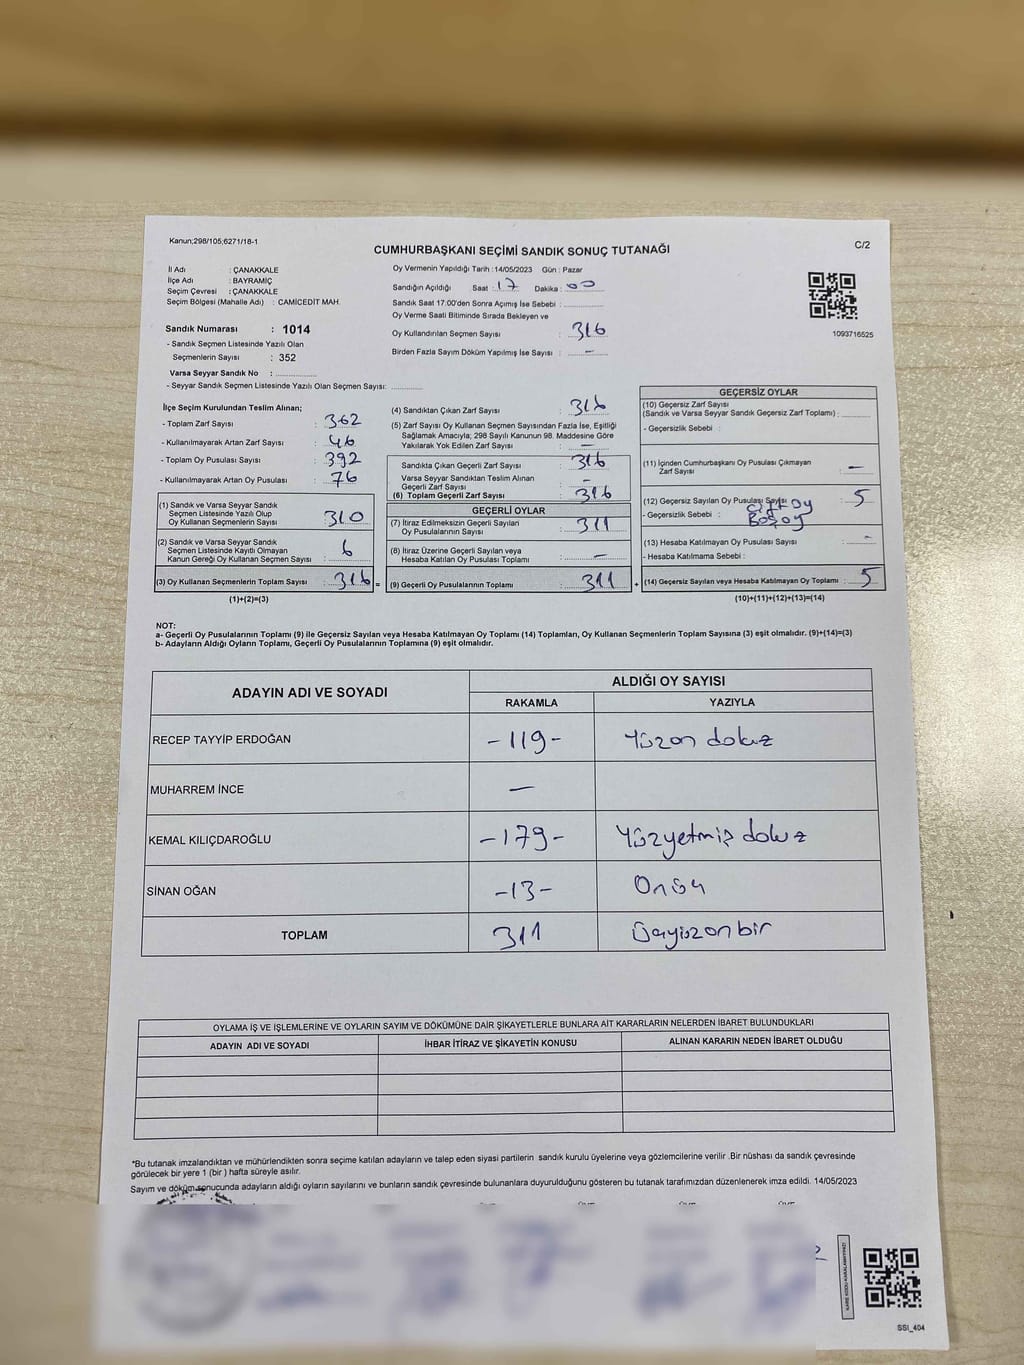 Kanun;298/105;6271/18-1
C/2
CUMHURBAŞKANI SEÇİMİ SANDIK SONUÇ TUTANAĞI
İl Adı : ÇANAKKALE
İlçe Adı : BAYRAMİÇ
Seçim Çevresi : ÇANAKKALE
Seçim Bölgesi (Mahalle Adı) : CAMİCEDİT MAH.
Sandık Numarası : 1014
- Sandık Seçmen Listesinde Yazılı Olan
Seçmenlerin Sayısı : 352
Varsa Seyyar Sandık No : ..............
- Seyyar Sandık Seçmen Listesinde Yazılı Olan Seçmen Sayısı: ............
Oy Vermenin Yapıldığı Tarih :14/05/2023 Gün : Pazar
Sandığın Açıldığı Saat : 17 Dakika : 00
Sandık Saat 17:00'den Sonra Açımış İse Sebebi :
Oy Verme Saati Bitiminde Sırada Bekleyen ve
Oy Kullandırılan Seçmen Sayısı : 316
Birden Fazla Sayım Döküm Yapılmış İse Sayısı : -
1093716525
İlçe Seçim Kurulundan Teslim Alınan;
- Toplam Zarf Sayısı : 362
- Kullanılmayarak Artan Zarf Sayısı : 46
- Toplam Oy Pusulası Sayısı : 392
- Kullanılmayarak Artan Oy Pusulası : 76
(1) Sandık ve Varsa Seyyar Sandık
Seçmen Listesinde Yazılı Olup
Oy Kullanan Seçmenlerin Sayısı : 310
(2) Sandık ve Varsa Seyyar Sandık
Seçmen Listesinde Kayıtlı Olmayan
Kanun Gereği Oy Kullanan Seçmen Sayısı : 6
(3) Oy Kullanan Seçmenlerin Toplam Sayısı : 316 =
(1)+(2)=(3)
(4) Sandıktan Çıkan Zarf Sayısı : 316
(5) Zarf Sayısı Oy Kullanan Seçmen Sayısından Fazla İse, Eşitliği
Sağlamak Amacıyla; 298 Sayılı Kanunun 98. Maddesine Göre
Yakılarak Yok Edilen Zarf Sayısı : -
Sandıkta Çıkan Geçerli Zarf Sayısı : 316
Varsa Seyyar Sandıktan Teslim Alınan
Geçerli Zarf Sayısı : -
(6) Toplam Geçerli Zarf Sayısı : 316
GEÇERLİ OYLAR
(7) İtiraz Edilmeksizin Geçerli Sayılan
Oy Pusulalarının Sayısı : 311
(8) İtiraz Üzerine Geçerli Sayılan veya
Hesaba Katılan Oy Pusulası Toplamı : -
(9) Geçerli Oy Pusulalarının Toplamı : 311 +
GEÇERSİZ OYLAR
(10) Geçersiz Zarf Sayısı
(Sandık ve Varsa Seyyar Sandık Geçersiz Zarf Toplamı) :
- Geçersizlik Sebebi :
(11) İçinden Cumhurbaşkanı Oy Pusulası Çıkmayan
Zarf Sayısı : -
(12) Geçersiz Sayılan Oy Pusulası Sayısı : 5
- Geçersizlik Sebebi : Çift oy
Boş oy
(13) Hesaba Katılmayan Oy Pusulası Sayısı : -
- Hesaba Katılmama Sebebi :
(14) Geçersiz Sayılan veya Hesaba Katılmayan Oy Toplamı : 5
(10)+(11)+(12)+(13)=(14)
NOT:
a- Geçerli Oy Pusulalarının Toplamı (9) ile Geçersiz Sayılan veya Hesaba Katılmayan Oy Toplamı (14) Toplamları, Oy Kullanan Seçmenlerin Toplam Sayısına (3) eşit olmalıdır. (9)+(14)=(3)
b- Adayların Aldığı Oyların Toplamı, Geçerli Oy Pusulalarının Toplamına (9) eşit olmalıdır.
ADAYIN ADI VE SOYADI
ALDIĞI OY SAYISI
RAKAMLA YAZIYLA
RECEP TAYYİP ERDOĞAN -119- Yüzon dokuz
MUHARREM İNCE -
KEMAL KILIÇDAROĞLU -179- Yüzyetmiş dokuz
SİNAN OĞAN -13- Onüç
TOPLAM 311 Üçyüzonbir
OYLAMA İŞ VE İŞLEMLERİNE VE OYLARIN SAYIM VE DÖKÜMÜNE DAİR ŞİKAYETLERLE BUNLARA AİT KARARLARIN NELERDEN İBARET BULUNDUKLARI
ADAYIN ADI VE SOYADI İHBAR İTİRAZ VE ŞİKAYETİN KONUSU ALINAN KARARIN NEDEN İBARET OLDUĞU
*Bu tutanak imzalandıktan ve mühürlendikten sonra seçime katılan adayların ve talep eden siyasi partilerin sandık kurulu üyelerine veya gözlemcilerine verilir .Bir nüshası da sandık çevresinde
görülecek bir yere 1 (bir ) hafta süreyle asılır.
Sayım ve döküm sonucunda adayların aldığı oyların sayılarını ve bunların sandık çevresinde bulunanlara duyurulduğunu gösteren bu tutanak tarafımızdan düzenlenerek imza edildi. 14/05/2023
SSI_404